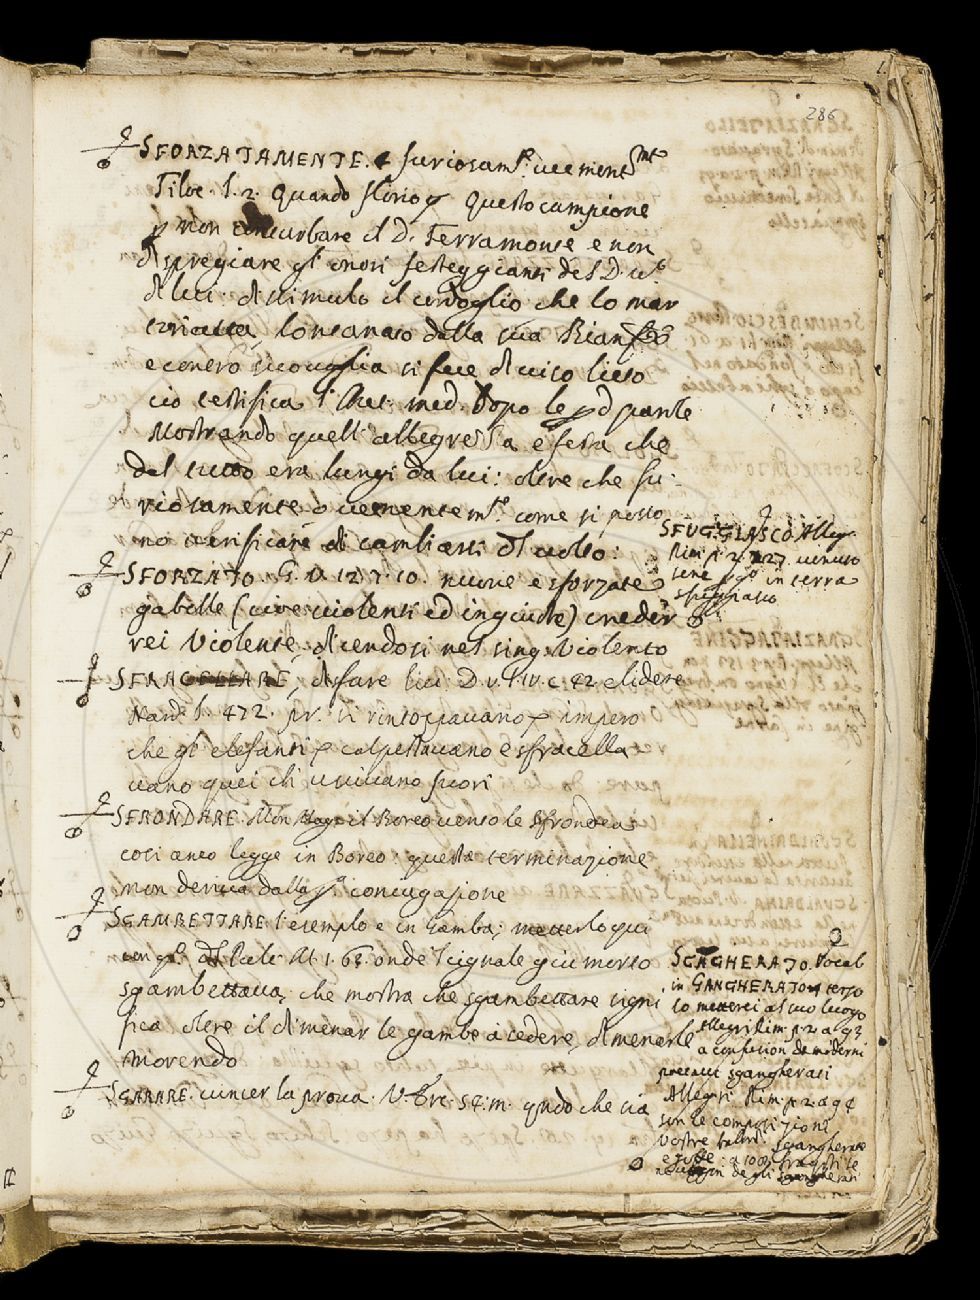 286
SFORZATAMENTE. furiosam.te uement
Filoc. l. 2. Quando Florio Questo campione
p non conturbare il D. Ferramonte e non
dispregiare gl' onori festeggianti del D. uto
di lui: di stimulo il cordoglio che lo mar
toriaua, lontanato dalla sua Bianfio
e contro sua uoglia si fece di uiso lieto
ciò testifica l' Aut. med. Dopo le d parole
Mostrando quell' allegrezza e festa che
dal tutto era lungi da lui: oltre che fu-
riosamente o uementem.te come si posso
no uerificare di cambiarsi del uolto:
SFORZATO. G. V. 12. 7. 10. nuoue e sforzate
gabelle (cioe uiolenti ed ingiuste) creder
rei Violente, dicendosi nel sing. Violento
SFRACELLARE, disfare lui: D. V. l. IV. c. 42 elidere
Nard. l. 472. pr. si rintoppauano p impero
che gl' elefanti p calpestauano e sfracella
uano quei ch uscivano fuori
SFRONDARE. il Boreo uento le sfrondea
cosi anco legge in Boreo: questa terminazione
non deriua dalla p.a coniugazione
SGAMBETTARE. l' esemplo e in Gamba; metterlo qui
con q.o del Pule. M. 1. 68. onde 'l cignale giu morto
sgambettaua, che mostra che sgambettare signi
fica oltre il dimenar le gambe a sedere, dimenarle
morendo
SGARARE. uincer la proua. V. Bre. 54: m. q.ndo che sia
SFUGGIASCO. Allegr.
Rim. p. 2. 27. uenuto
sene in terra
sfuggiasco
SGAGHERATO. Vocab
in GANGHERATO terzo
lo metterei al suo luogo
Allegri Rim. p. 2. a 93
a confusion de moderni
poetacci sgangherati
Allegri Rim. p. 2. a 94
son le composizione
Vostre sgangherate
de gli sgangherati